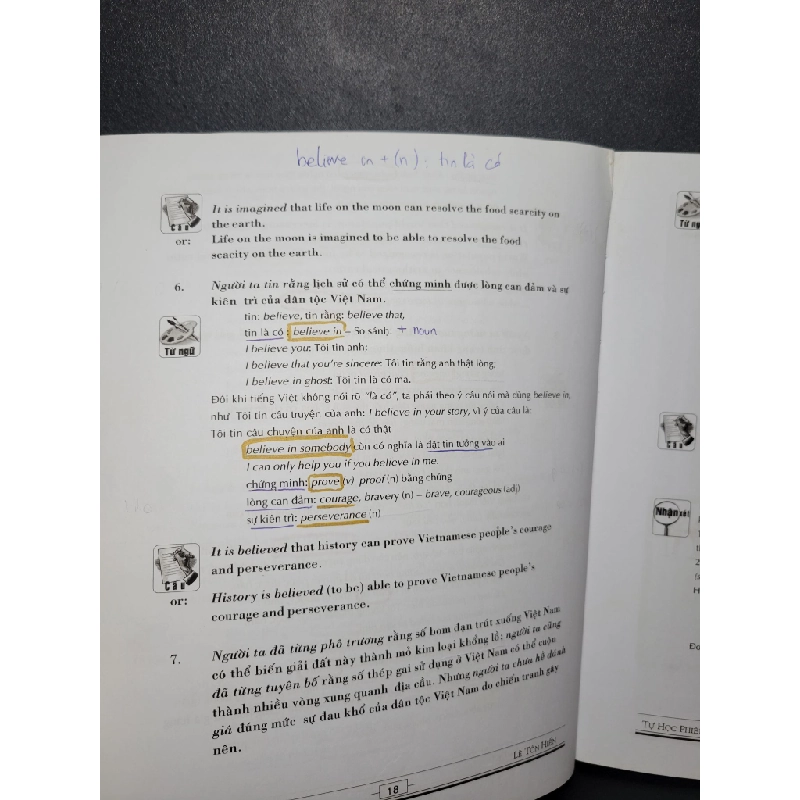 believe in + (n) : tin là có
It is imagined that life on the moon can resolve the food scarcity on
the earth.
Câu
or:
Life on the moon is imagined to be able to resolve the food
scacity on the earth.
6. Người ta tin rằng lịch sử có thể chứng minh được lòng can đảm và sự
kiên trì của dân tộc Việt Nam.
tin: believe, tin rằng: believe that,
tin là có : believe in – So sánh + noun
Từ ngữ
I believe you: Tôi tin anh:
I believe that you're sincere: Tôi tin rằng anh thật lòng.
I believe in ghost: Tôi tin là có ma.
Đôi khi tiếng Việt không nói rõ "là có", ta phải theo ý câu nói mà dùng believe in,
như: Tôi tin câu truyện của anh: I believe in your story, vì ý của câu là:
Tôi tin câu chuyện của anh là có thật
believe in somebody còn có nghĩa là đặt tin tưởng vào ai
I can only help you if you believe in me.
chứng minh: prove (v) proof (n) bằng chứng
lòng can đảm: courage, bravery (n) – brave, courageous (adj)
sự kiên trì: perseverance (n)
It is believed that history can prove Vietnamese people's courage
and perseverance.
Câu
or:
History is believed (to be) able to prove Vietnamese people's
courage and perseverance.
7. Người ta đã từng phô trương rằng số bom đạn trút xuống Việt Nam
có thể biến giải đất này thành mỏ kim loại khổng lồ; người ta cũng
đã từng tuyên bố rằng số thép gai sử dụng ở Việt Nam có thể cuộn
thành nhiều vòng xung quanh địa cầu. Nhưng người ta chưa hề đánh
giá đúng mức sự đau khổ của dân tộc Việt Nam do chiến tranh gây
nên.
LÊ TÔN HIẾN
18
Nhận xét
TỰ HỌC PHIÊ